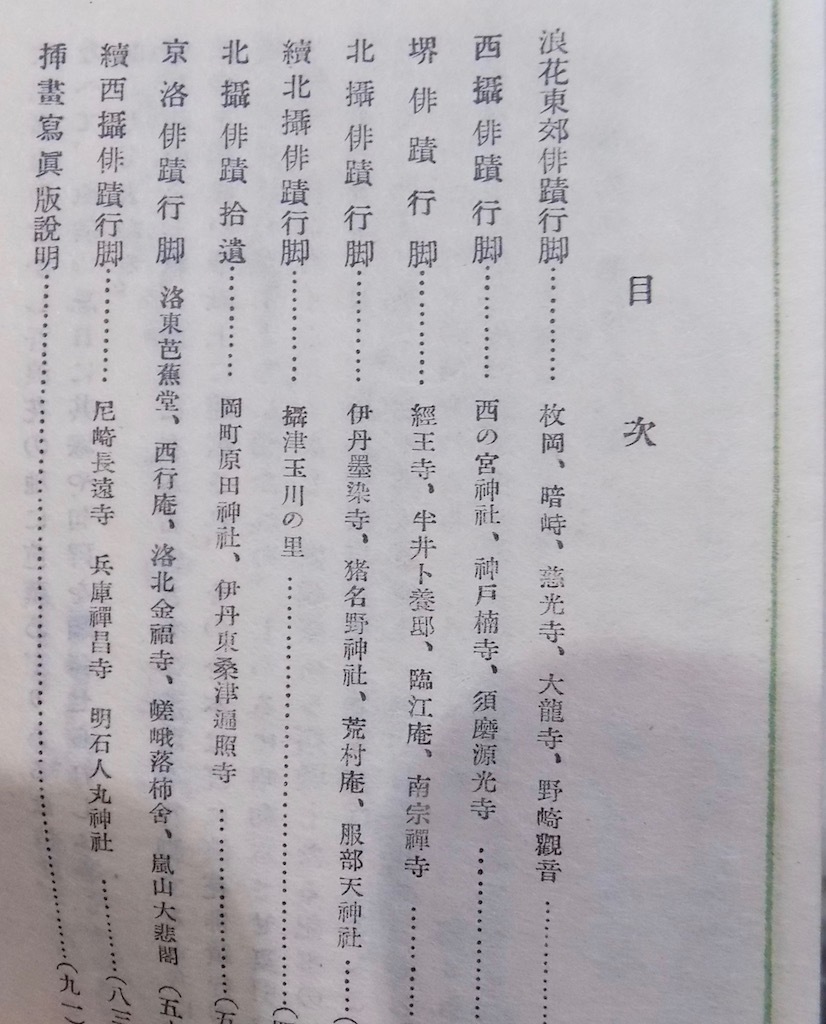 目次
浪花東郊俳蹟行脚…………枚岡、暗峠、慈光寺、大龍寺、野崎觀音…………
西攝俳蹟行脚…………西の宮神社、神戸楠寺、須磨源光寺…………
堺俳蹟行脚…………經王寺、半井卜養邸、臨江庵、南宗禪寺…………
北攝俳蹟行脚…………伊丹墨染寺、猪名野神社、荒村庵、服部天神社……(
續北攝俳蹟行脚…………攝津玉川の里…………(
北攝俳蹟拾遺…………岡町原田神社、伊丹東桑津遍照寺…………(五
京洛俳蹟行脚 洛東芭蕉堂、西行庵、洛北金福寺、嵯峨落柿舍、嵐山大悲閣(五
續西攝俳蹟行脚…………尼崎長遠寺 兵庫禪昌寺 明石人丸神社…………(八三
挿畫寫眞版說明…………(九一